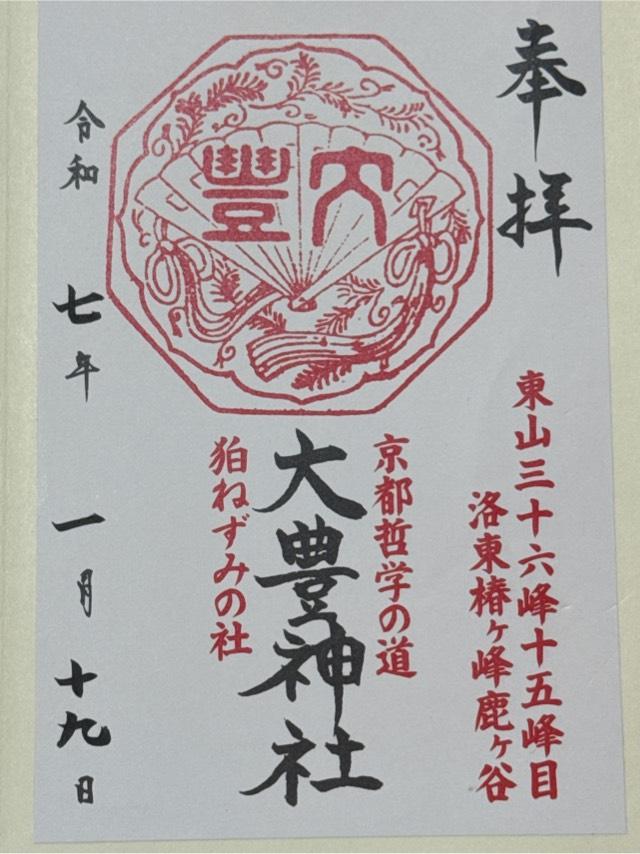 奉拝
東山三十六峰十五峰目
洛東椿ヶ峰鹿ヶ谷
大豊
京都哲学の道
大豊神社
狛ねずみの社
令和七年一月十九日